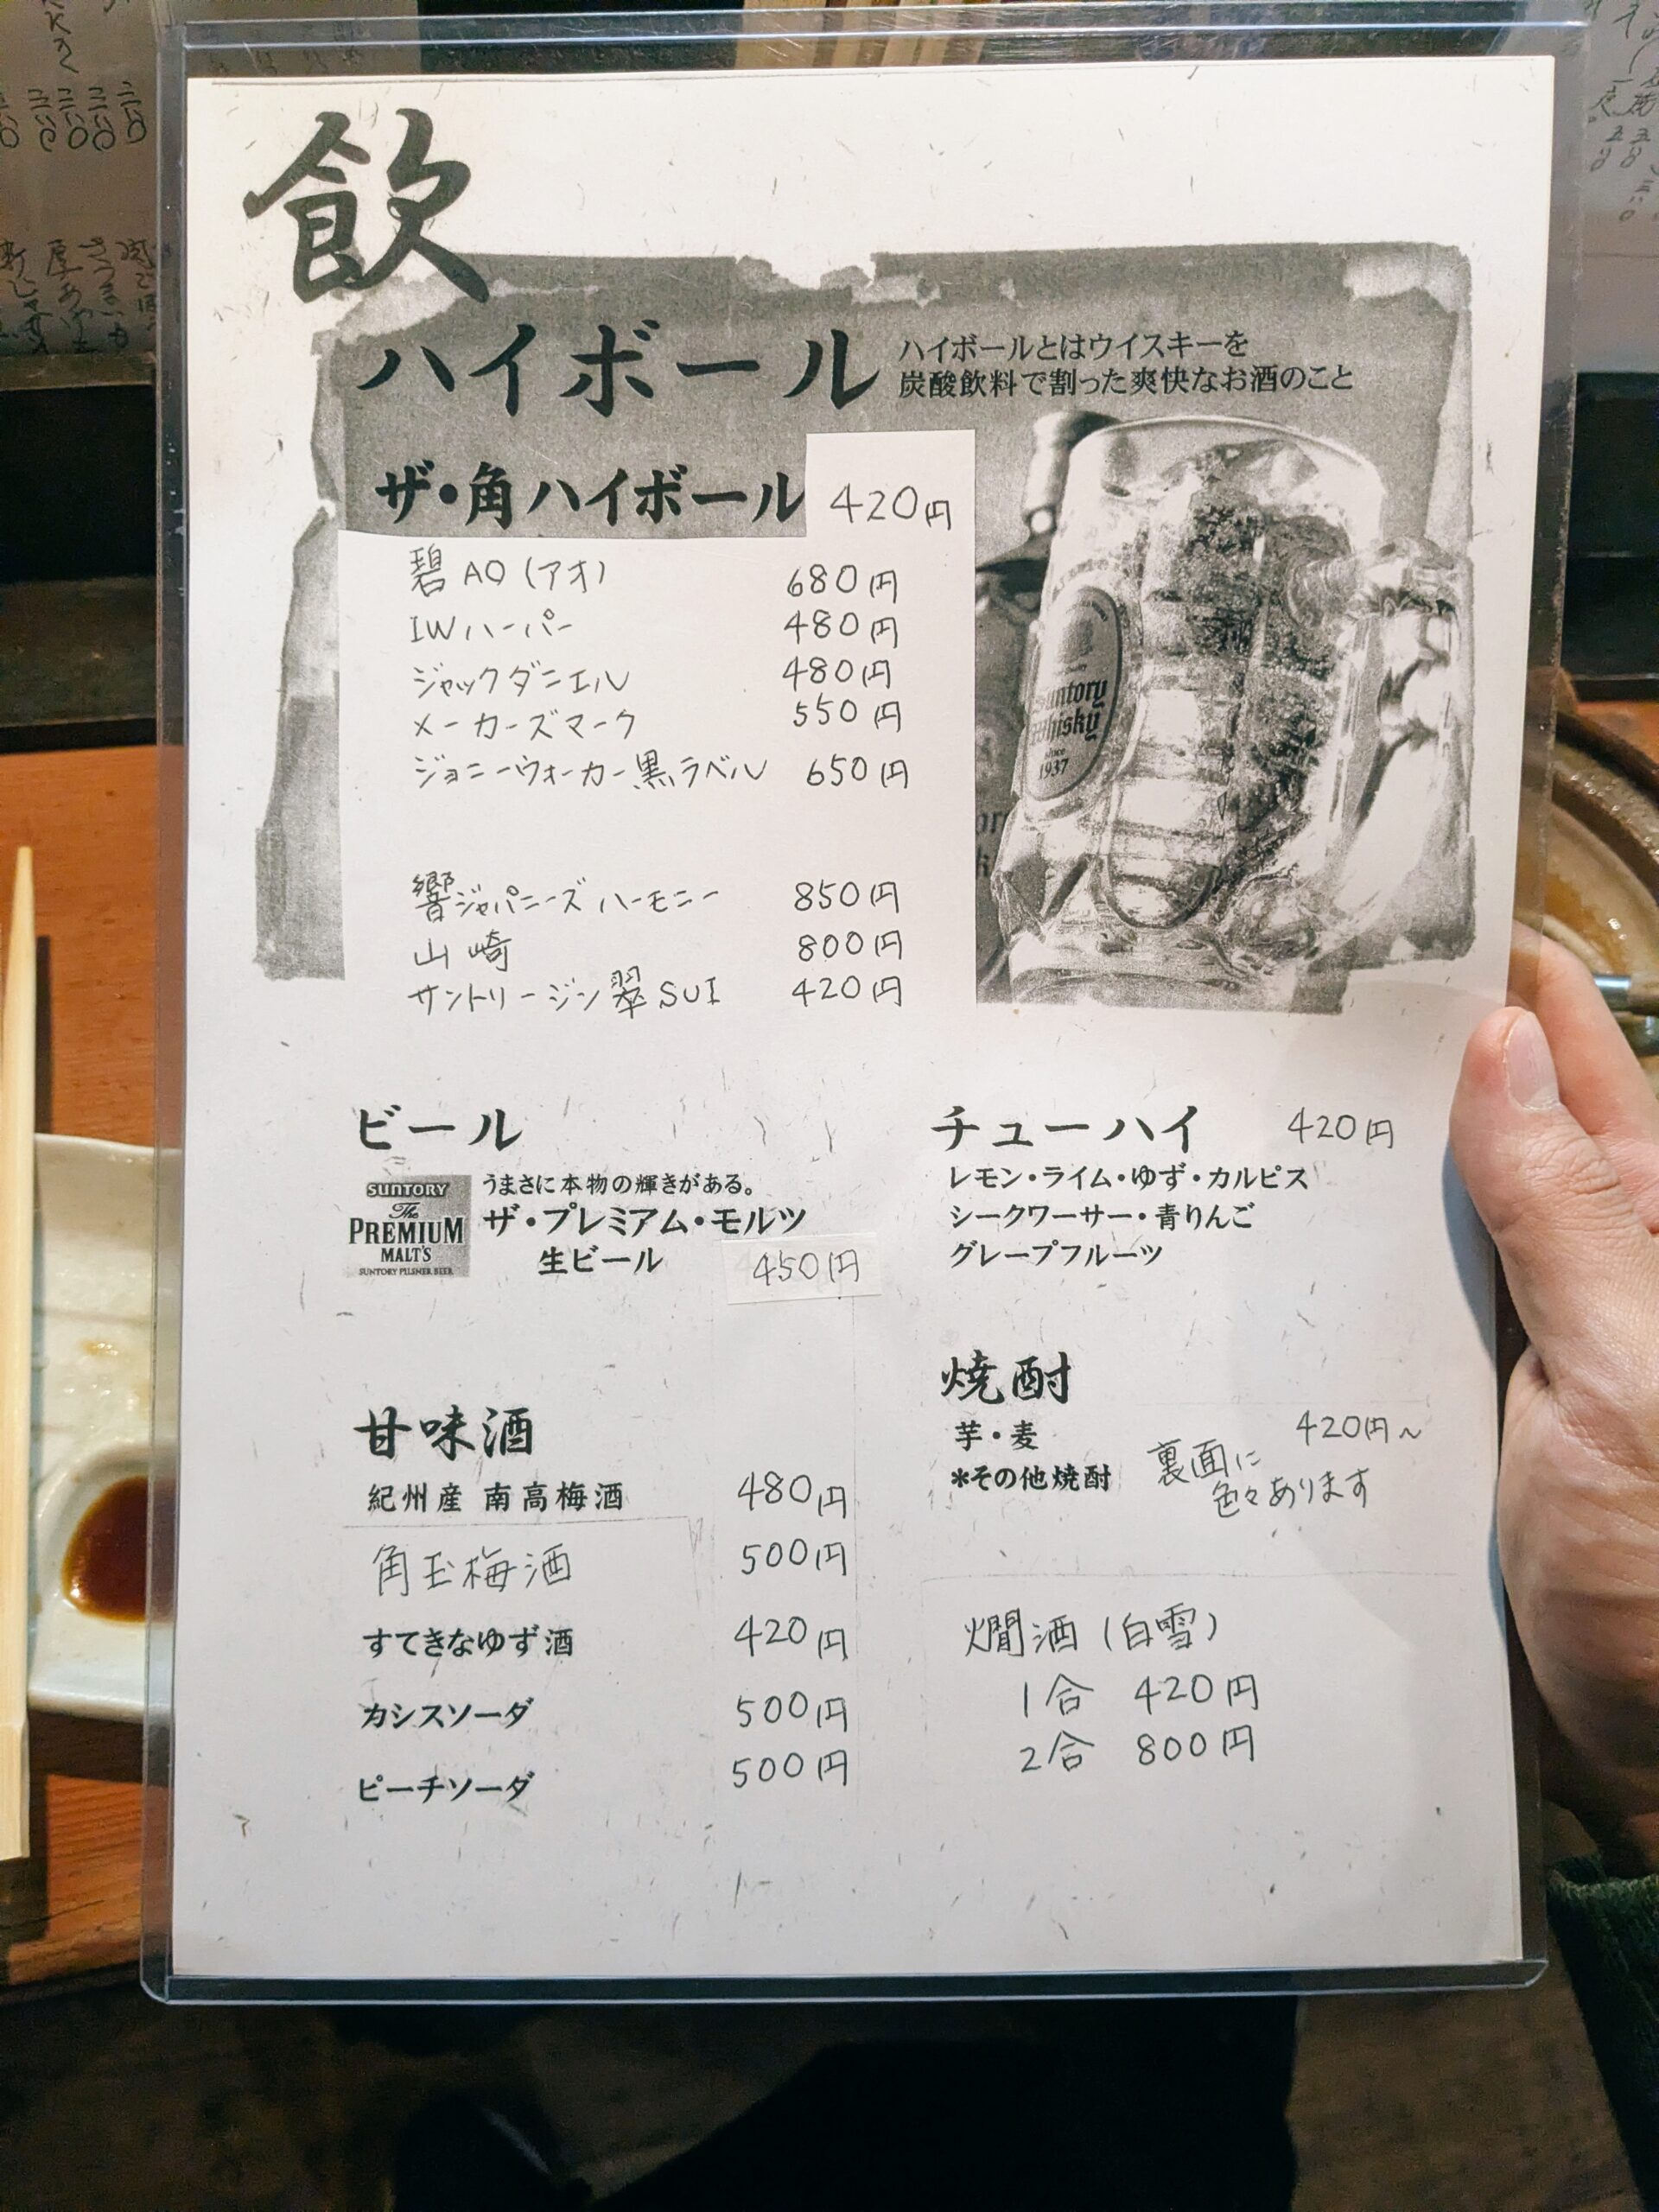 飲
ハイボール
ハイボールとはウイスキーを
炭酸飲料で割った爽快なお酒のこと
ザ・角ハイボール 420円
碧 AO (アオ) 680円
IWハーパー 480円
ジャックダニエル 480円
メーカーズマーク 550円
ジョニーウォーカー黒ラベル 650円
響ジャパニーズ ハーモニー 850円
山崎 800円
サントリージン翠SUI 420円
Suntory
Whisky
since
1937
ビール
SUNTORY
The
PREMIUM
MALT'S
SUNTORY PILSNER BEER
うまさに本物の輝きがある。
ザ・プレミアム・モルツ
生ビール 450円
チューハイ 420円
レモン・ライム・ゆず・カルピス
シークワーサー・青りんご
グレープフルーツ
焼酎
芋・麦 420円~
*その他焼酎 裏面に
色々あります
甘味酒
紀州産 南高梅酒 480円
角玉梅酒 500円
すてきなゆず酒 420円
カシスソーダ 500円
ピーチソーダ 500円
燗酒 (白雪)
1合 420円
2合 800円